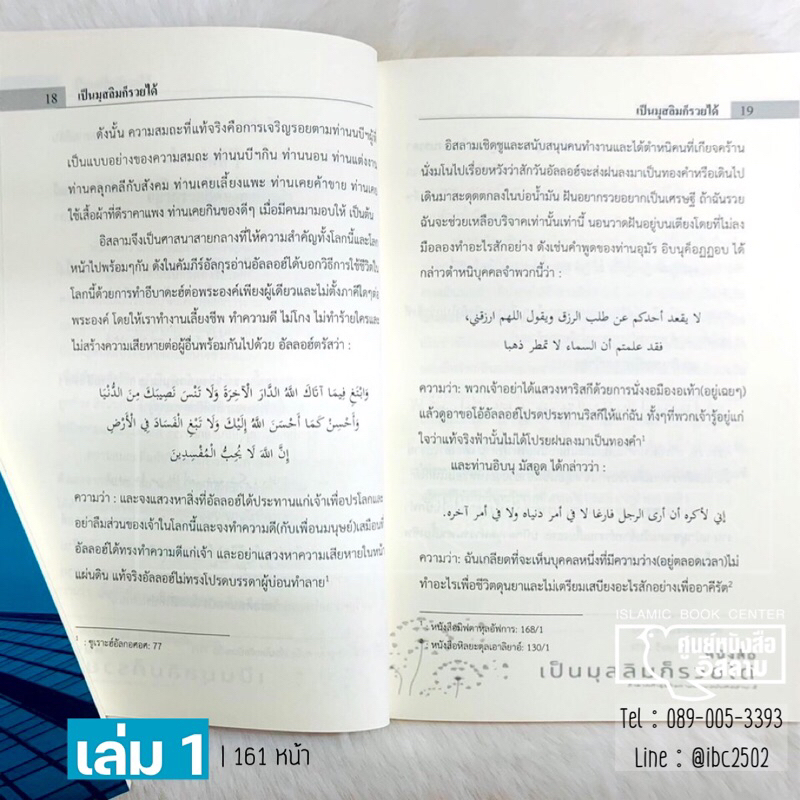 18 เป็นมุสลิมก็รวยได้
ดังนั้น ความสมถะที่แท้จริงคือการเจริญรอยตามท่านนบีฯผู้
เป็นแบบอย่างของความสมถะ ท่านนบีฯกิน ท่านนอน ท่านแต่งงาน
ท่านคลุกคลีกับสังคม ท่านเคยเลี้ยงแพะ ท่านเคยค้าขาย ท่านเคย
ใช้เสื้อผ้าที่ดีราคาแพง ท่านเคยกินของดีๆ เมื่อมีคนมามอบให้ เป็นต้น
อิสลามจึงเป็นศาสนาสายกลางที่ให้ความสำคัญทั้งโลกนี้และโลก
หน้าไปพร้อมๆกัน ดังในคัมภีร์อัลกุรอ่านอัลลอฮ์ได้บอกวิธีการใช้ชีวิตใน
โลกนี้ด้วยการทำอีบาดะฮ์ต่อพระองค์เพียงผู้เดียวและไม่ตั้งภาคีใดๆต่อ
พระองค์ โดยให้เราทำงานเลี้ยงชีพ ทำความดี ไม่โกง ไม่ทำร้ายใครและ
ไม่สร้างความเสียหายต่อผู้อื่นพร้อมกันไปด้วย อัลลอฮ์ตรัสว่า :
وَابْتَغِ فِيمَا آتَاكَ اللَّهُ الدَّارَ الْآخِرَةَ وَلَا تَنْسَ نَصِيبَكَ مِنَ الدُّنْيَا
وَأَحْسِنْ كَمَا أَحْسَنَ اللَّهُ إِلَيْكَ وَلَا تَبْغِ الْفَسَادَ فِي الْأَرْضِ
إِنَّ اللَّهَ لَا يُحِبُّ الْمُفْسِدِينَ
ความว่า : และจงแสวงหาสิ่งที่อัลลอฮ์ได้ประทานแก่เจ้าเพื่อปรโลกและ
อย่าลืมส่วนของเจ้าในโลกนี้และจงทำความดี(กับเพื่อนมนุษย์)เสมือนที่
อัลลอฮ์ได้ทรงทำความดีแก่เจ้า และอย่าแสวงหาความเสียหายในหน้า
แผ่นดิน แท้จริงอัลลอฮ์ไม่ทรงโปรดบรรดาผู้บ่อนทำลาย¹
¹ : ซูเราะฮ์อัลกอศอศ: 77
เป็นมุสลิมก็รวยได้ 19
อิสลามเชิดชูและสนับสนุนคนทำงานและได้ตำหนิคนที่เกียจคร้าน
นั่งมโนไปเรื่อยหวังว่าสักวันอัลลอฮ์จะส่งฝนลงมาเป็นทองคำหรือเดินไป
เดินมาสะดุดตกลงในบ่อน้ำมัน ฝันอยากรวยอยากเป็นเศรษฐี ถ้าฉันรวย
ฉันจะช่วยเหลือบริจาคเท่านั้นเท่านี้ นอนวาดฝันอยู่บนเตียงโดยที่ไม่ลง
มือลองทำอะไรสักอย่าง ดังเช่นคำพูดของท่านอุมัร อิบนุค็อฏฏอบ ได้
กล่าวตำหนิบุคคลจำพวกนี้ว่า :
لا يقعد أحدكم عن طلب الرزق ويقول اللهم ارزقني،
فقد علمتم أن السماء لا تمطر ذهبا
ความว่า: พวกเจ้าอย่าได้แสวงหาริสกีด้วยการนั่งงอมืองอเท้า(อยู่เฉยๆ)
แล้วดูอาขอโอ้อัลลอฮ์โปรดประทานริสกีให้แก่ฉัน ทั้งๆที่พวกเจ้ารู้อยู่แก่
ใจว่าแท้จริงฟ้านั้นไม่ได้โปรยฝนลงมาเป็นทองคำ¹
และท่านอิบนุ มัสอูด ได้กล่าวว่า :
إني لأكره أن أرى الرجل فارغا لا في أمر دنياه ولا في أمر آخره.
ความว่า: ฉันเกลียดที่จะเห็นบุคคลหนึ่งที่มีความว่าง(อยู่ตลอดเวลา)ไม่
ทำอะไรเพื่อชีวิตดุนยาและไม่เตรียมเสบียงอะไรสักอย่างเพื่ออาคีรัต²
: หนังสือมิฟตาหุลอัฟการ: 168/1
: หนังสือหิลยะตุลเอาลิยาอ์: 130/1
หนังสือ
เป็นมุสลิมก็รวยได้
ISLAMIC BOOK CENTER
ศูนย์หนังสือ
อิสลาม
Tel : 089-005-3393
Line : @ibc2502
เล่ม 1 | 161 หน้า